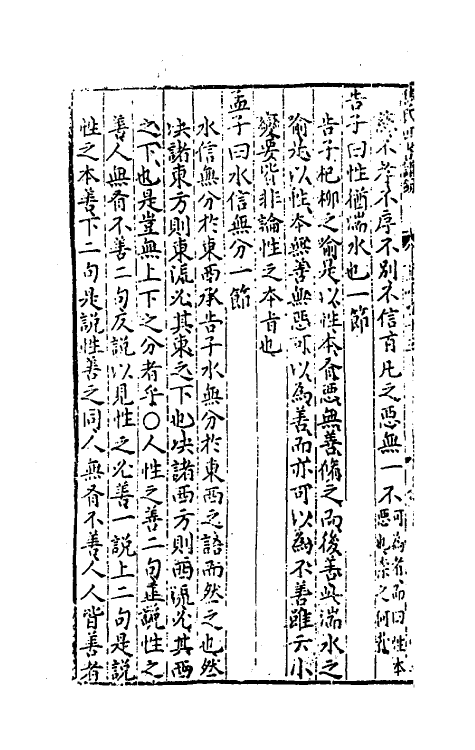 慈不孝不序不別不信百凡之惡無一不可為者而曰性本惡也柰之何哉
告子曰性猶湍水也一節
告子杞柳之喻是以性本有惡無善脩之而後善此湍水之
喻是以性本無善無惡可以為善而亦可以為不善雖云小
變要皆非論性之本旨也
孟子曰水信無分一節
水信無分於東西承告子水無分於東西之語而然之也然
决諸東方則東流必其東之下也决諸西方則西流必其西
之下也是豈無上下之分者乎○人性之善二句葢說性之
善人無有不善二句反說以見性之必善一說上二句是說
性之本善下二句是說性善之同人無有不善人人皆善者